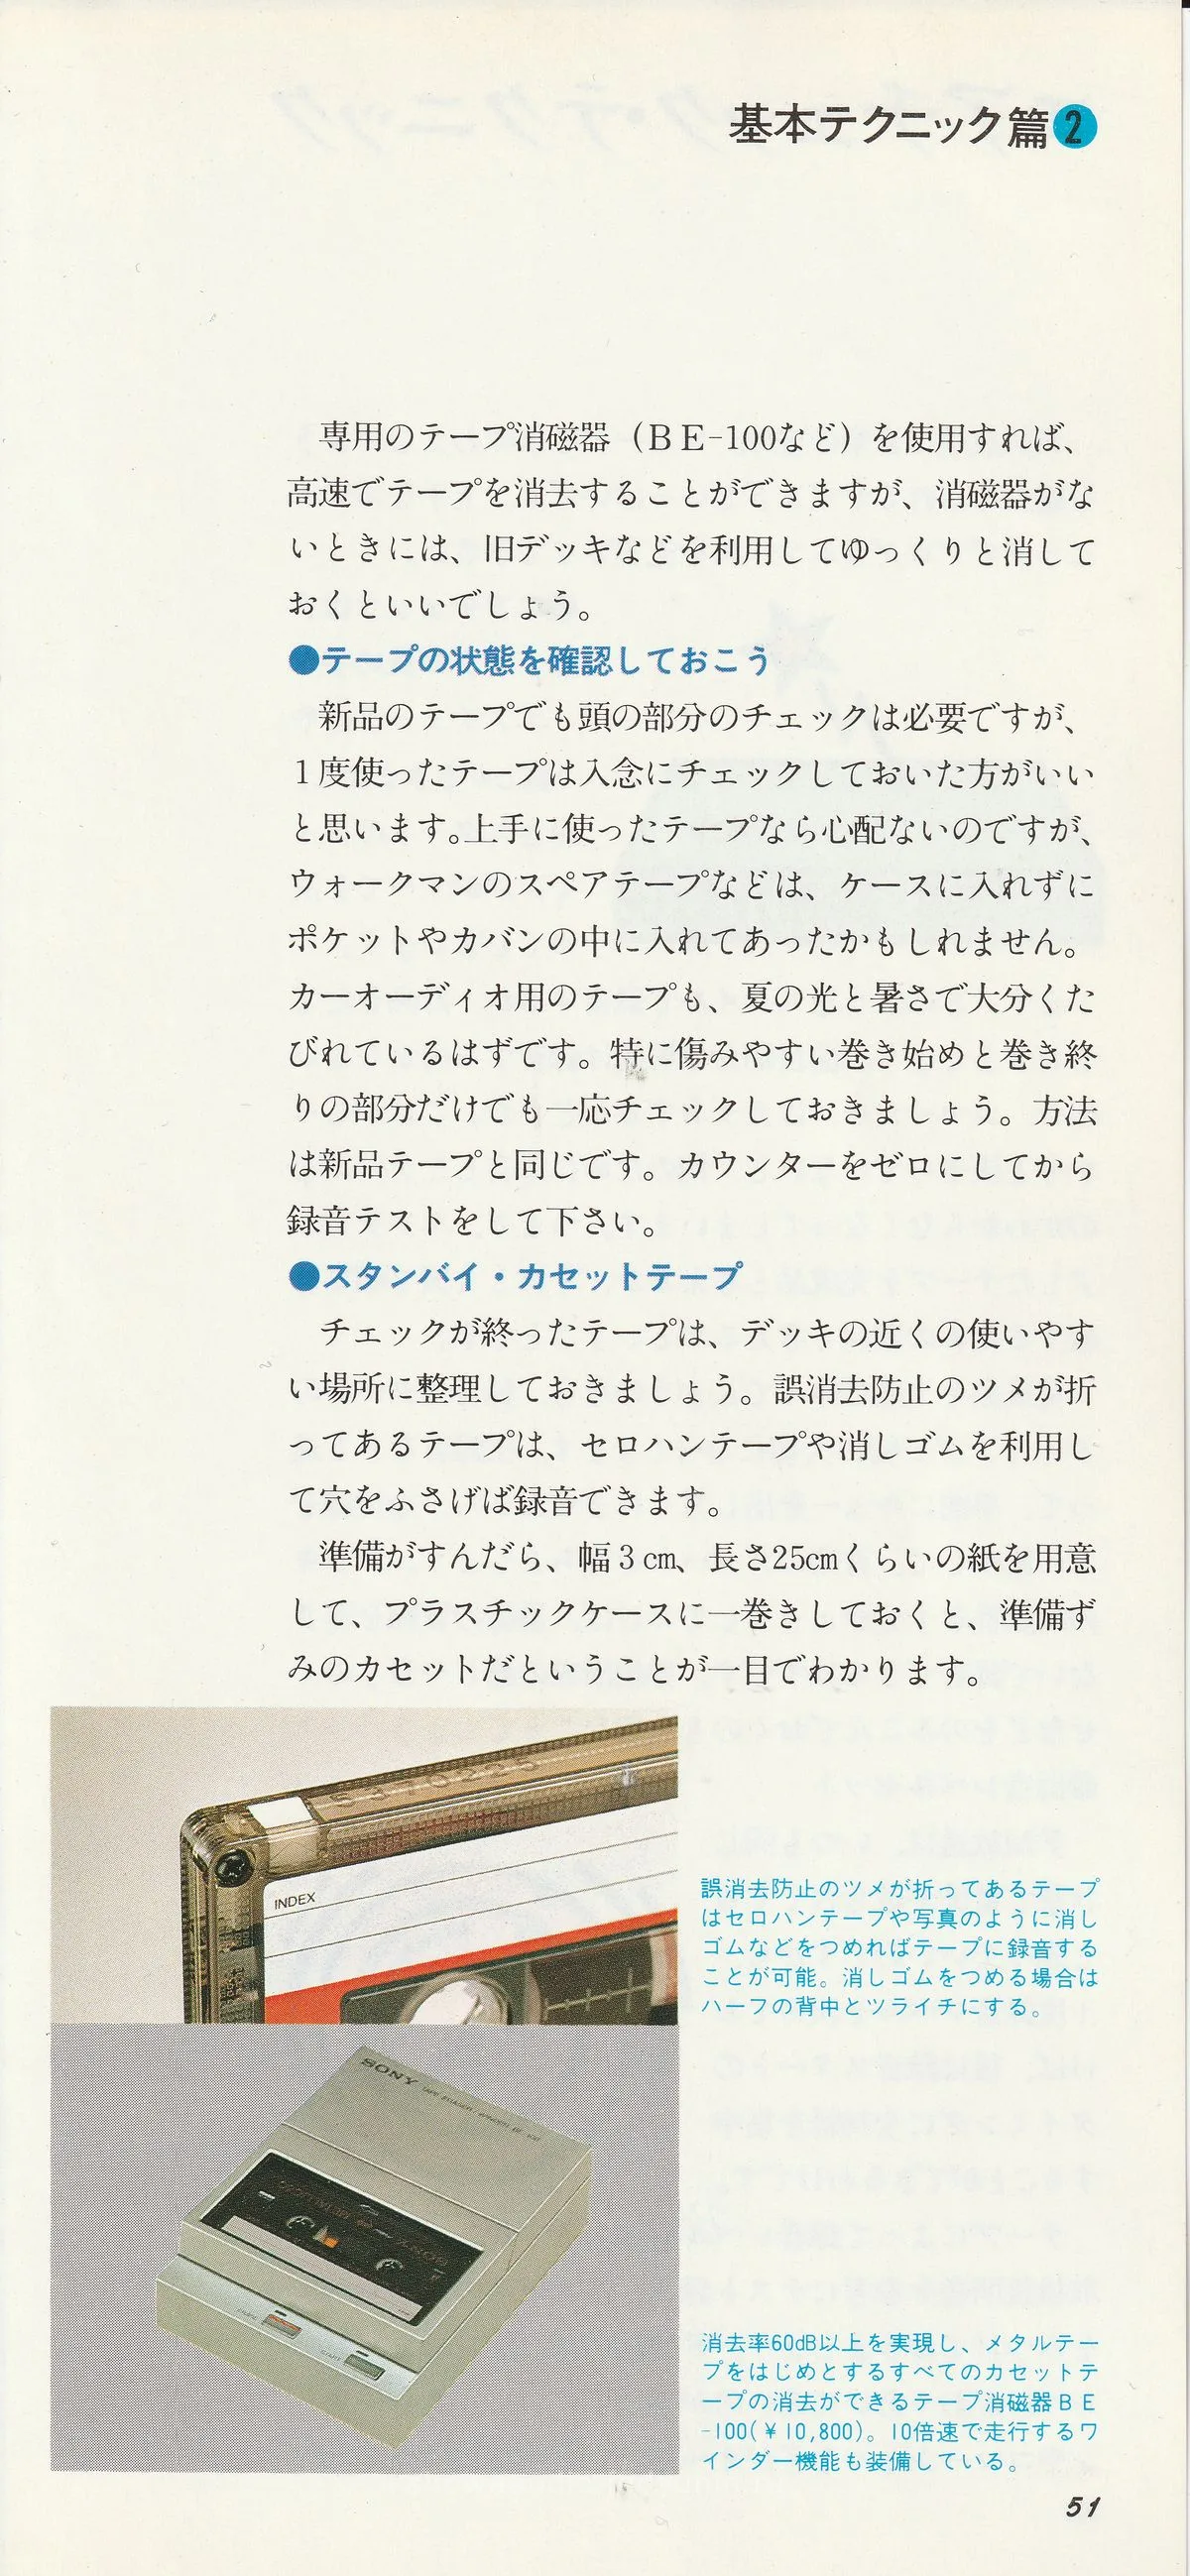 基本テクニック篇2
専用のテープ消磁器（ＢＥ-100など）を使用すれば、
高速でテープを消去することができますが、消磁器がな
いときには、旧デッキなどを利用してゆっくりと消して
おくといいでしょう。
●テープの状態を確認しておこう
新品のテープでも頭の部分のチェックは必要ですが、
１度使ったテープは入念にチェックしておいた方がいい
と思います。上手に使ったテープなら心配ないのですが、
ウォークマンのスペアテープなどは、ケースに入れずに
ポケットやカバンの中に入れてあったかもしれません。
カーオーディオ用のテープも、夏の光と暑さで大分くた
びれているはずです。特に傷みやすい巻き始めと巻き終
りの部分だけでも一応チェックしておきましょう。方法
は新品テープと同じです。カウンターをゼロにしてから
録音テストをして下さい。
●スタンバイ・カセットテープ
チェックが終ったテープは、デッキの近くの使いやす
い場所に整理しておきましょう。誤消去防止のツメが折
ってあるテープは、セロハンテープや消しゴムを利用し
て穴をふさげば録音できます。
準備がすんだら、幅３cm、長さ25cmくらいの紙を用意
して、プラスチックケースに一巻きしておくと、準備ず
みのカセットだということが一目でわかります。
INDEX
誤消去防止のツメが折ってあるテープ
はセロハンテープや写真のように消し
ゴムなどをつめればテープに録音する
ことが可能。消しゴムをつめる場合は
ハーフの背中とツライチにする。
SONY
消去率60dB以上を実現し、メタルテー
プをはじめとするすべてのカセットテ
ープの消去ができるテープ消磁器ＢＥ
-100(￥10,800)。10倍速で走行するワ
インダー機能も装備している。
51